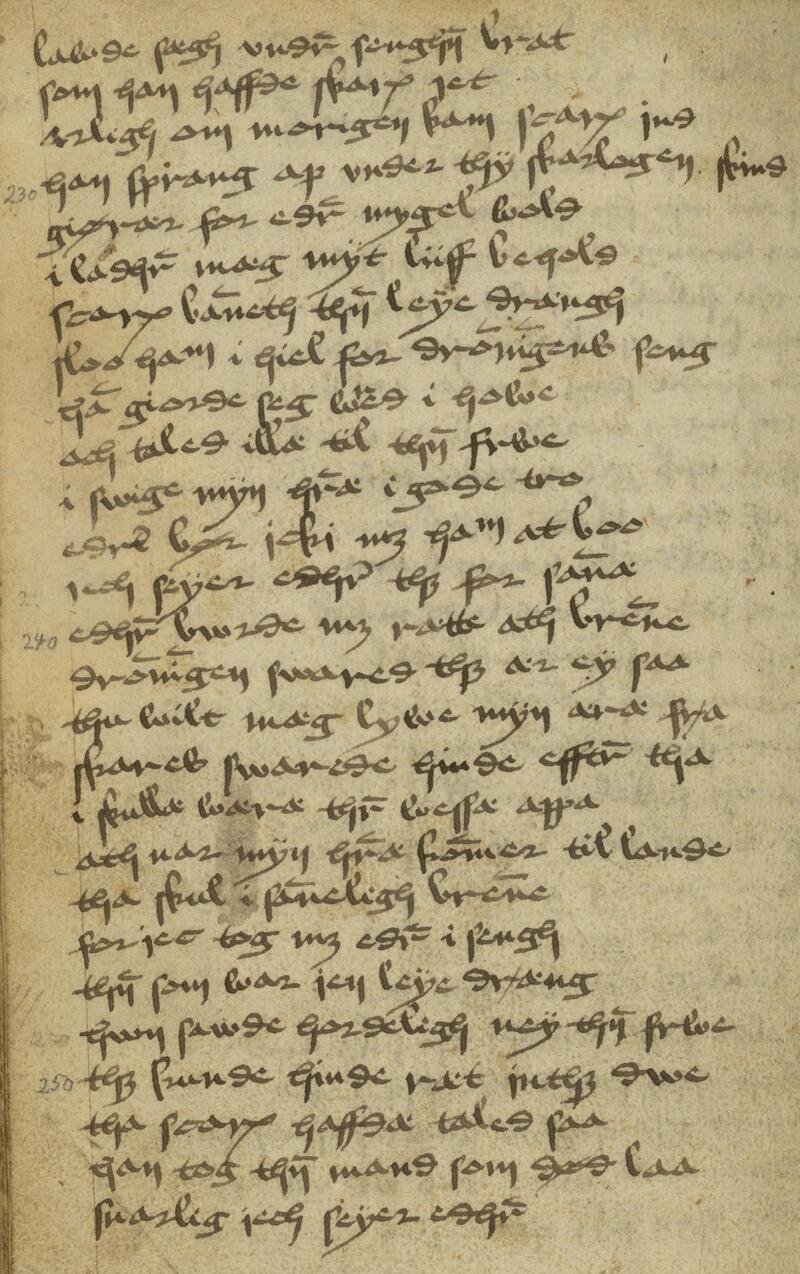 lawde sægh vndr̄ senghn̄ brat
som han haffde skarp jet
arligh om morigen kam scarp ind
230 han sprang ap vnder thy skarlogen skind
giørær for edr̄ mygel wold
i ladhr̄ mæg myt liiff behold
scarp bāneth thn̄ leye drængh
sloo ham i hiel for drōnīgens seng
hā giorde seg wred i howe
och taled illæ til thn̄ frwe
i swige myn hr̄æ i gode tro
edr̄ bør icki mz ham at boo
jech seyer edhr̄ thz for sānæ
240 edhr̄ bwrde mz rætte ath brēne
drōnīgen swared thz ær ey saa
thu wilt mæg lywe myn æræ fra
skareb swarede hinde efftr̄ tha
i skullæ wæræ thr̄ wessæ appa
ath nar myn hr̄æ kōmer til lande
tha skul i sāneligh brēne
for jec tog mz edr̄ i sengh
thn̄ som war jen leye dræng
hwn sawde hordeligh ney thn̄ frwe
250 thz kunde hinde ræt inthz dwe
tha scarp haffdæ taled saa
han tog thn̄ mand som død laa
snarleg jech seyer edhr̄